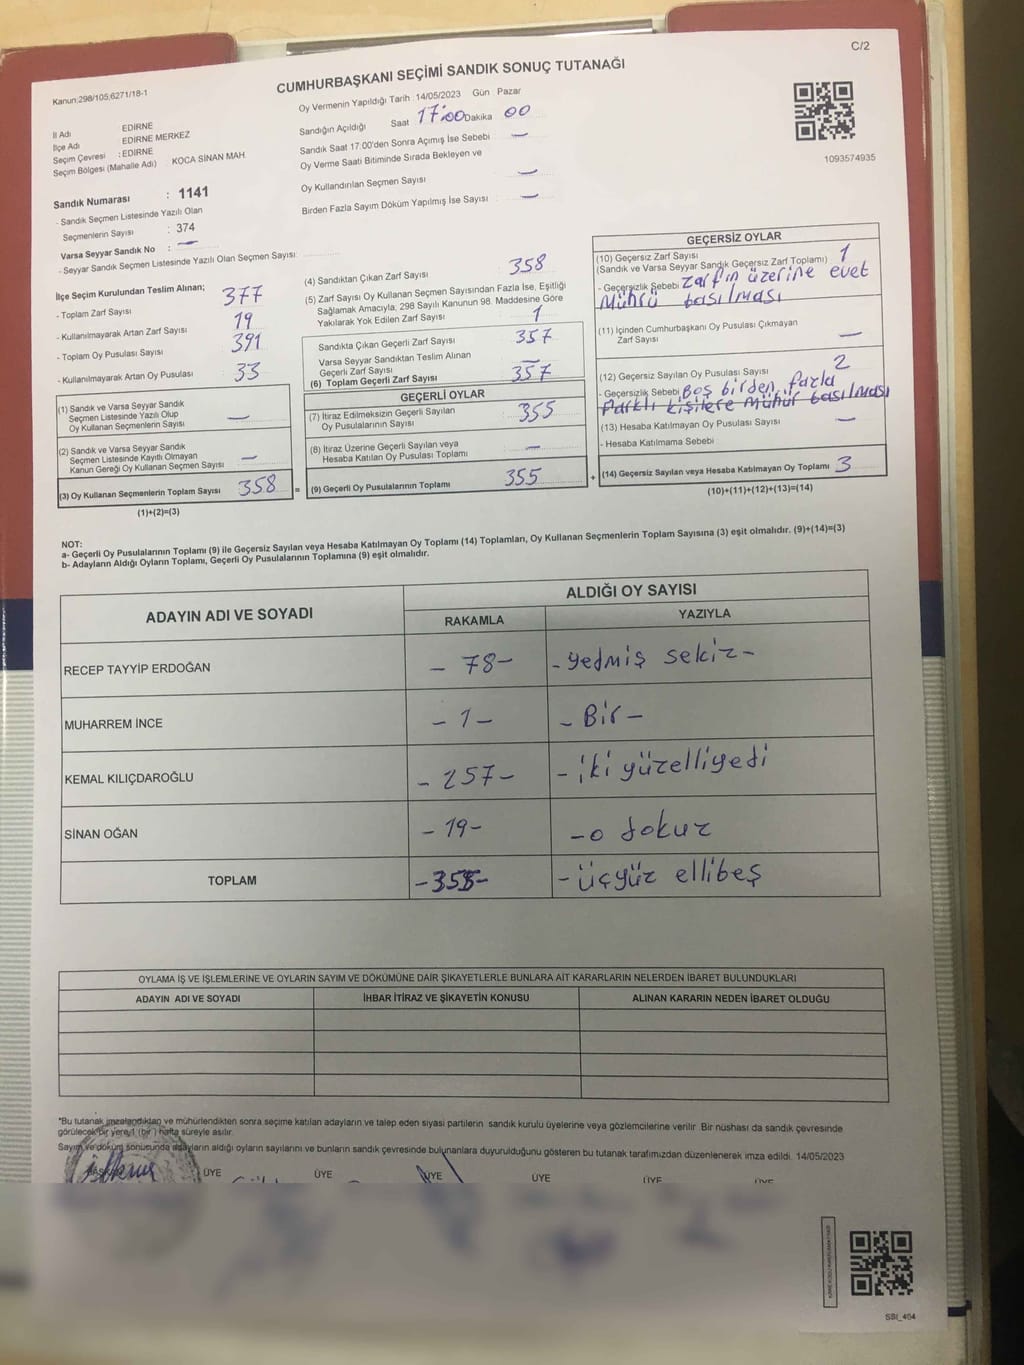 C/2
Kanun;298/105;6271/18-1
CUMHURBAŞKANI SEÇİMİ SANDIK SONUÇ TUTANAĞI
İl Adı EDİRNE
İlçe Adı EDİRNE MERKEZ
Seçim Çevresi : EDİRNE
Seçim Bölgesi (Mahalle Adı) KOCA SİNAN MAH
Oy Vermenin Yapıldığı Tarih 14/05/2023 Gün Pazar
Sandığın Açıldığı Saat 17:00 Dakika 00
Sandık Saat 17:00'den Sonra Açımış İse Sebebi —
Oy Verme Saati Bitiminde Sırada Bekleyen ve
Oy Kullandırılan Seçmen Sayısı —
Birden Fazla Sayım Döküm Yapılmış İse Sayısı —
1093574935
Sandık Numarası : 1141
- Sandık Seçmen Listesinde Yazılı Olan
Seçmenlerin Sayısı : 374
Varsa Seyyar Sandık No : —
- Seyyar Sandık Seçmen Listesinde Yazılı Olan Seçmen Sayısı:
İlçe Seçim Kurulundan Teslim Alınan;
- Toplam Zarf Sayısı 377
- Kullanılmayarak Artan Zarf Sayısı 19
- Toplam Oy Pusulası Sayısı 391
- Kullanılmayarak Artan Oy Pusulası 33
(1) Sandık ve Varsa Seyyar Sandık
Seçmen Listesinde Yazılı Olup
Oy Kullanan Seçmenlerin Sayısı —
(2) Sandık ve Varsa Seyyar Sandık
Seçmen Listesinde Kayıtlı Olmayan
Kanun Gereği Oy Kullanan Seçmen Sayısı —
(3) Oy Kullanan Seçmenlerin Toplam Sayısı 358 =
(1)+(2)=(3)
(4) Sandıktan Çıkan Zarf Sayısı 358
(5) Zarf Sayısı Oy Kullanan Seçmen Sayısından Fazla İse, Eşitliği
Sağlamak Amacıyla, 298 Sayılı Kanunun 98. Maddesine Göre
Yakılarak Yok Edilen Zarf Sayısı 1
Sandıkta Çıkan Geçerli Zarf Sayısı 357
Varsa Seyyar Sandıktan Teslim Alınan
Geçerli Zarf Sayısı —
(6) Toplam Geçerli Zarf Sayısı 357
GEÇERLİ OYLAR
(7) İtiraz Edilmeksizin Geçerli Sayılan
Oy Pusulalarının Sayısı 355
(8) İtiraz Üzerine Geçerli Sayılan veya
Hesaba Katılan Oy Pusulası Toplamı —
(9) Geçerli Oy Pusulalarının Toplamı 355 +
GEÇERSİZ OYLAR
(10) Geçersiz Zarf Sayısı 1
(Sandık ve Varsa Seyyar Sandık Geçersiz Zarf Toplamı)
- Geçersizlik Sebebi Zarfın üzerine evet
Mührü basılması
(11) İçinden Cumhurbaşkanı Oy Pusulası Çıkmayan
Zarf Sayısı —
(12) Geçersiz Sayılan Oy Pusulası Sayısı 2
- Geçersizlik Sebebi Boş birden fazla
Farklı kişilere Mühür basılması
(13) Hesaba Katılmayan Oy Pusulası Sayısı —
- Hesaba Katılmama Sebebi
(14) Geçersiz Sayılan veya Hesaba Katılmayan Oy Toplamı 3
(10)+(11)+(12)+(13)=(14)
NOT:
a- Geçerli Oy Pusulalarının Toplamı (9) ile Geçersiz Sayılan veya Hesaba Katılmayan Oy Toplamı (14) Toplamları, Oy Kullanan Seçmenlerin Toplam Sayısına (3) eşit olmalıdır. (9)+(14)=(3)
b- Adayların Aldığı Oyların Toplamı, Geçerli Oy Pusulalarının Toplamına (9) eşit olmalıdır.
ADAYIN ADI VE SOYADI ALDIĞI OY SAYISI
RAKAMLA YAZIYLA
RECEP TAYYİP ERDOĞAN - 78 - - yedmiş sekiz -
MUHARREM İNCE - 1 - - Bir -
KEMAL KILIÇDAROĞLU - 257 - - iki yüzelliyedi
SİNAN OĞAN - 19 - - o dokuz
TOPLAM - 355 - - üçyüz ellibeş
OYLAMA İŞ VE İŞLEMLERİNE VE OYLARIN SAYIM VE DÖKÜMÜNE DAİR ŞİKAYETLERLE BUNLARA AİT KARARLARIN NELERDEN İBARET BULUNDUKLARI
ADAYIN ADI VE SOYADI İHBAR İTİRAZ VE ŞİKAYETİN KONUSU ALINAN KARARIN NEDEN İBARET OLDUĞU
*Bu tutanak imzalandıktan ve mühürlendikten sonra seçime katılan adayların ve talep eden siyasi partilerin sandık kurulu üyelerine veya gözlemcilerine verilir. Bir nüshası da sandık çevresinde
görülecek bir yere 1 (bir) hafta süreyle asılır.
Sayım ve döküm sonucunda adayların aldığı oyların sayılarını ve bunların sandık çevresinde bulunanlara duyurulduğunu gösteren bu tutanak tarafımızdan düzenlenerek imza edildi. 14/05/2023
BAŞKAN ÜYE ÜYE ÜYE ÜYE ÜYE ÜYE
SBİ_404